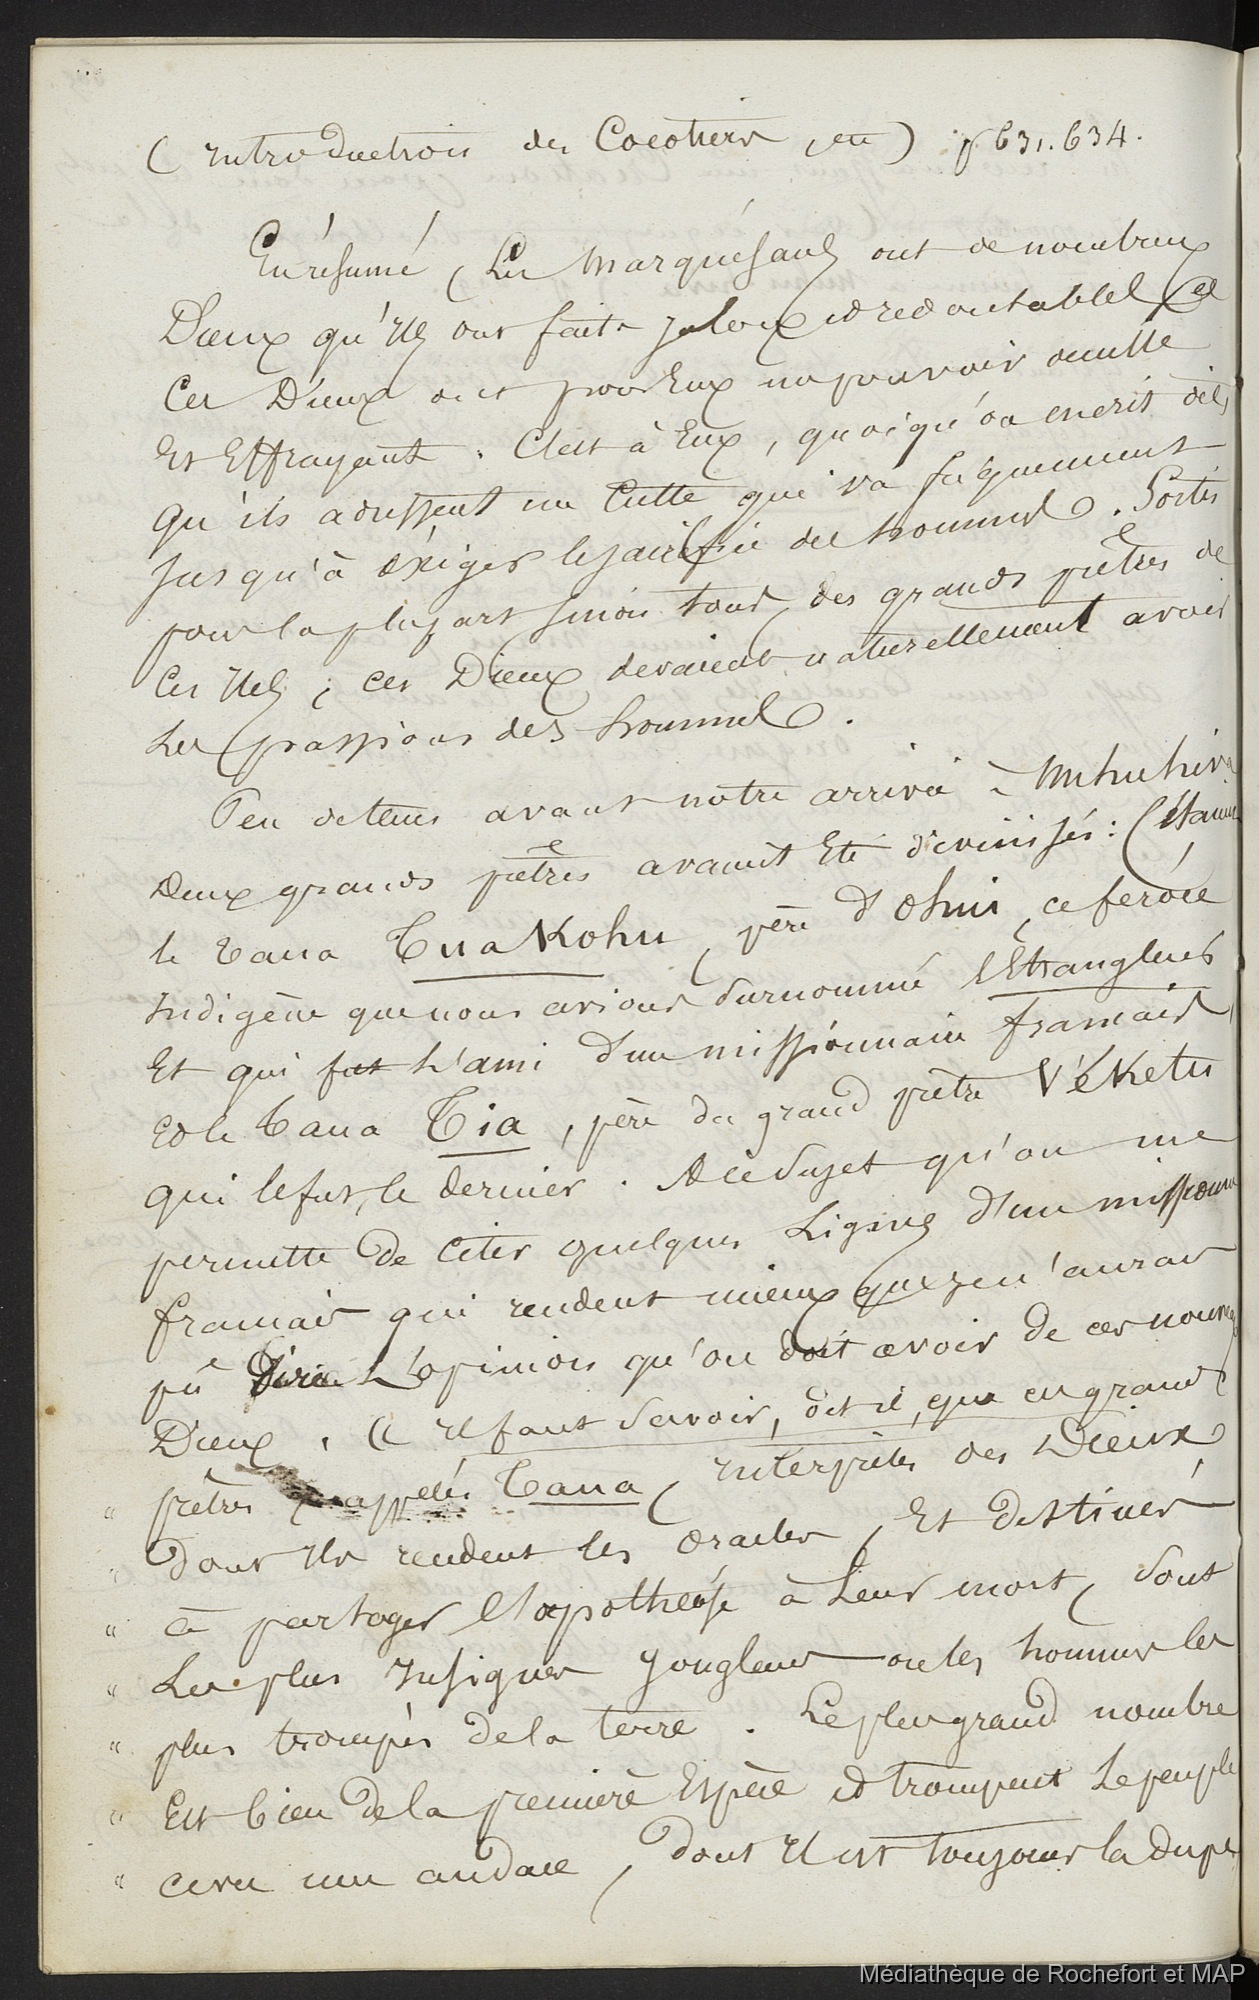 ( introduction des Cocotiers, etc ) p 631. 634.
En résumé, Les Marquésans ont de nombreux
Dieux qu'ils ont faits jaloux et redoutables, et
Ces Dieux ont pour Eux un pouvoir occulte
Et Effrayant. C'est à Eux, quoiqu'on en ait dit,
qu'ils adressent un Culte qui va fréquemment
jusqu'à éxiger le sacrifice des hommes. Sortis
pour la plupart sinon tous, des grands prêtres de
Ces Iles, ces Dieux devaient naturellement avoir
Les passions des hommes.
Peu de tems avant notre arrivée à Nuhuhiva
deux grands prêtres avaient Eté divinisés : C'étaient
le Taua Tuakohu, père d'Ohui, ce féroce
Indigène que nous avions surnommé l'Etrangleur
Et qui fut L'ami d'un missionnaire français,
et le Taua Tia, père du grand prêtre Véketu
qui le fut, le dernier. A ce sujet qu'on me
permette de Citer quelques Lignes d'un missionn
français qui rendent mieux que je n'aurais
pû dire L'opinion qu'on doit avoir de ces nouveaux
Dieux. « Il faut savoir, dit il, que ces grands
" prêtres appelés Taua, interprètes des Dieux
" dont ils rendent les oracles, Et destinés
" à partager l'apothéose à Leur mort, sont
" Les plus Insignes jongleurs ou les hommes les
" plus trompés de la terre. Le plus grand nombre
" Est bien de la première Espèce et trompent Le peuple
" avec une audace, dont il est toujours la dupe
Médiathèque de Rochefort et MAP